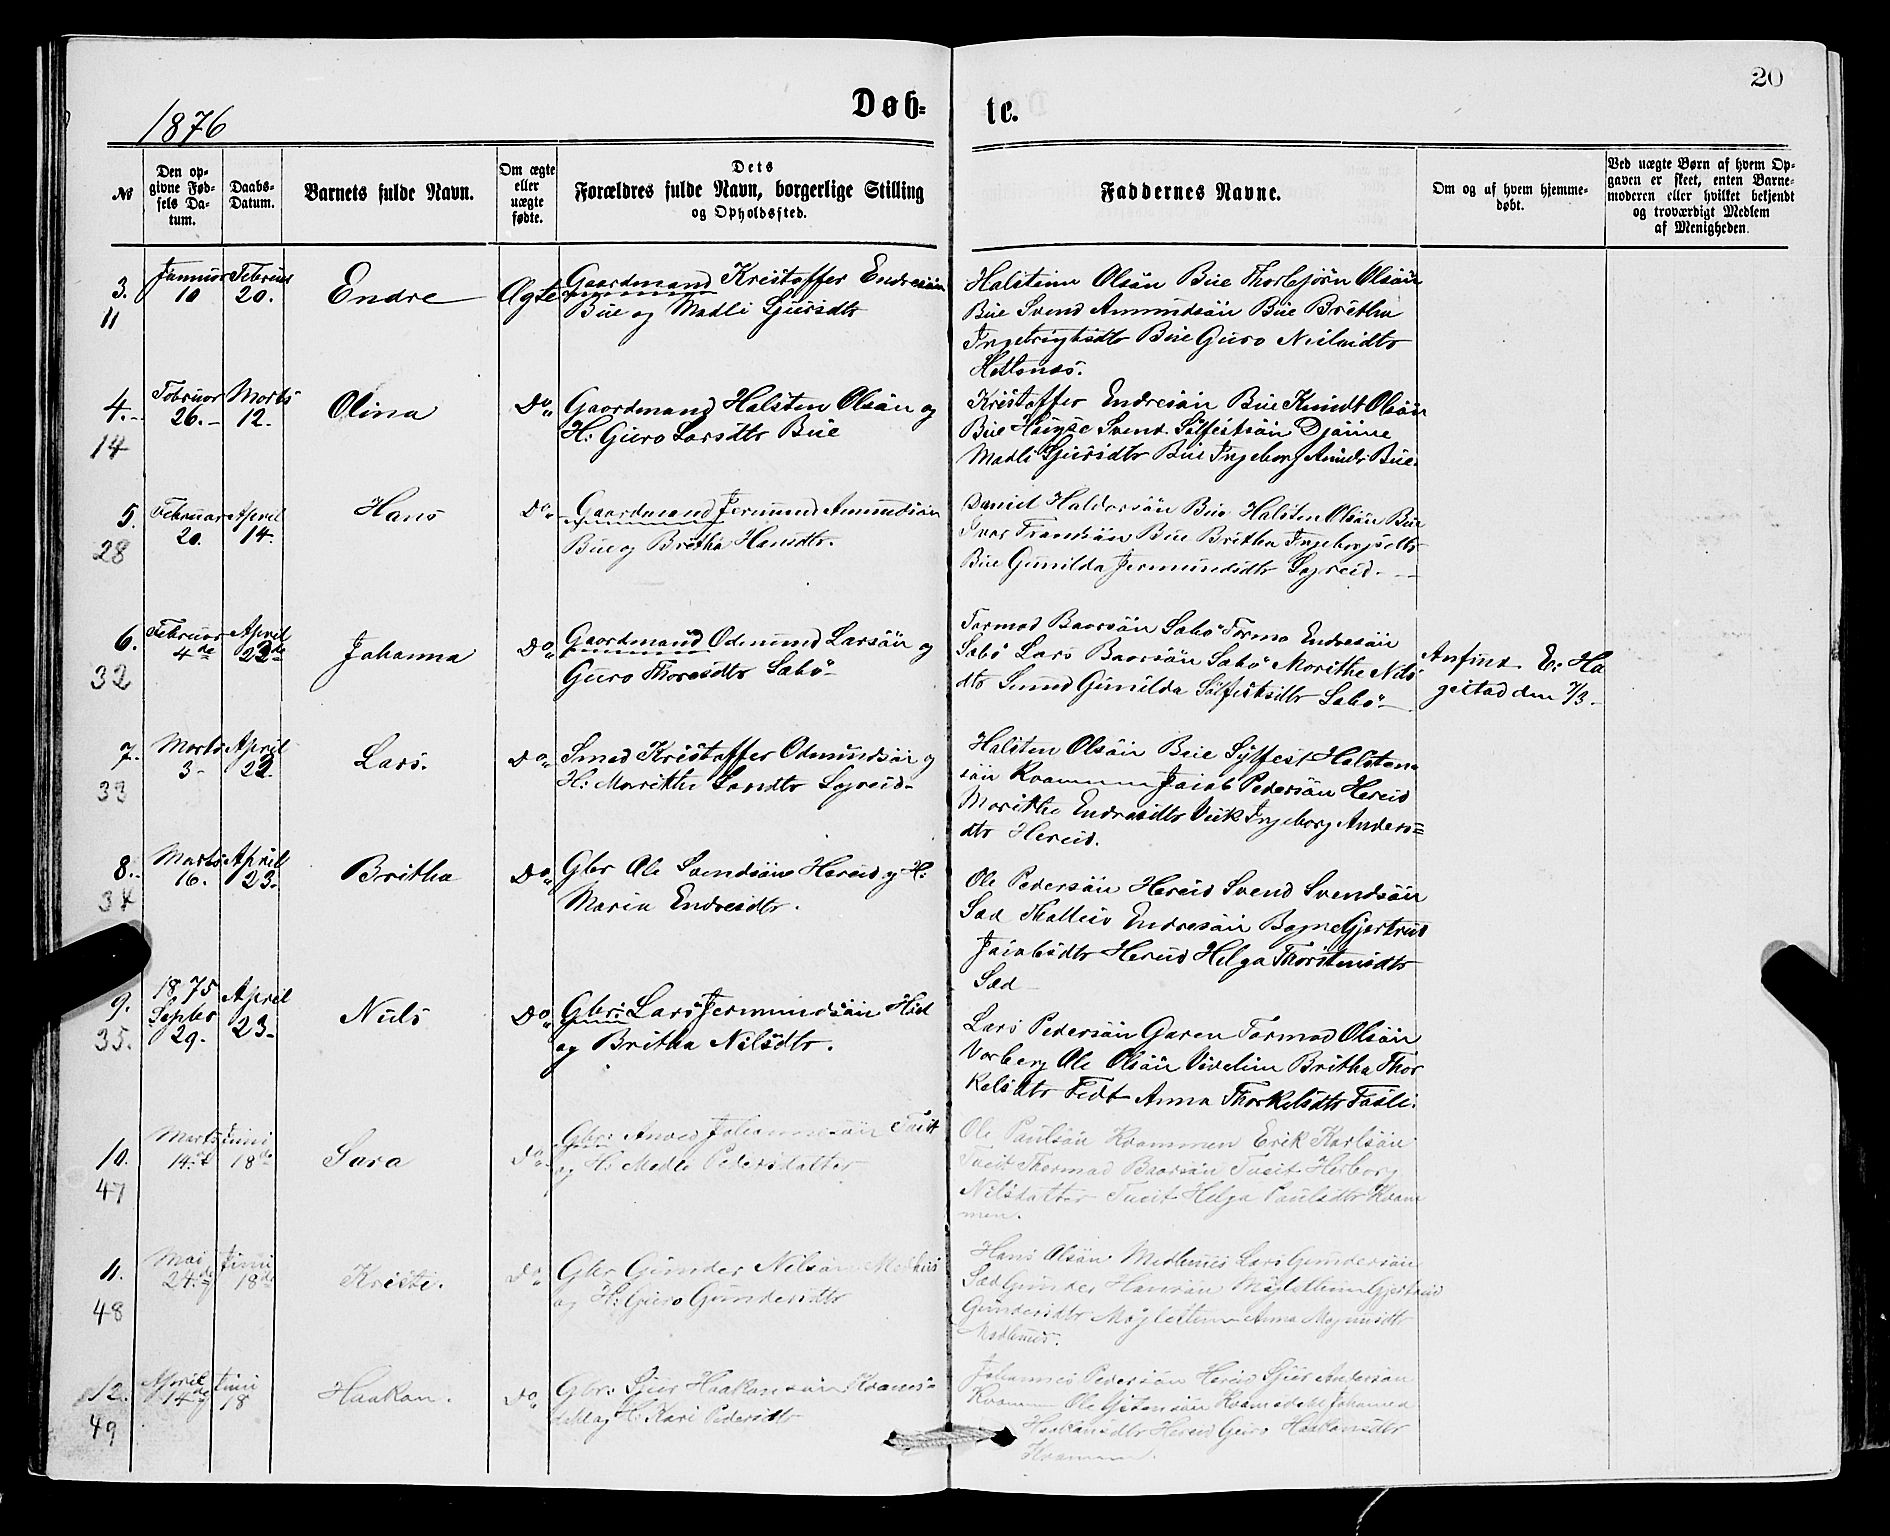 20
1876
Døb-
te.
№
Den op-
givne Fød-
sels Da-
tum.
Daabs-
Datum.
Barnets fulde Navn.
Om ægte
eller
uægte
fødte.
Dets
Forældres fulde Navn, borgerlige Stilling
og Opholdssted.
Faddernes Navne.
Om og af hvem hjemme-
døbt.
Ved uægte Børn af hvem Op-
gaven er skeet, enten Barne-
moderen eller hvilket bekjendt
og troværdigt Medlem
af Menigheden.
3.
11
Januar
10
Februar
20.
Endre
Ægte
Gaardmand Kristoffer Endresön
Bue og Madli Sjursdtr
Halstein Olsön Bue Thorbjörn Olsön
Bue Svend Amundsön Bue Britha
Ingebrigtsdtr Bue Guro
4.
14
Februar
26.
Marts
12.
Olina
Do
Gaardmand Halsten Olsön og
H: Guro Larsdtr Bue
Kristoffer Endresön Bue Knudt Olsön
Bue Svend Sölfestsön
Madli Sjursdtr Bue Ingeborg Bue
5.
28
Februar
20.
April
14.
Hans
Do
Gaardmand Jermund Amundsön
Bue og Britha Hansdtr.
Daniel Haldorsön Bue Halsten Olsön Bue
Ivar Bue Britha
Bue Gunilda Jermundsdtr Sygreid
6.
32
Februar
4de
April
22de
Johanna
Do
Gaardmand Odmund Larsön og
Guro Thoresdtr Sabö
Tormod Baarsön Sabö Tormo Endresön
Sabö Lars Baarsön Sabö Marithe Nils
dtr Gunilda Sölfestsdtr Sabö
Anfind E: Ha
gestad den 7/3
7.
33
Marts
3
April
22.
Lars.
Do
Smed Kristoffer Odmundsön og
H: Marithe Sygreid
Halsten Olsön Bue Sylfest Halsten
sön Kvammen Jacob Pedersön Hereid
Marithe Endresdtr Viik Ingeborg Anders
dtr Hereid.
8.
34
Marts
16.
April
23.
Britha
Do
Gbr Ole Svendsön Hereid og H:
Maria Endresdtr.
Ole Pedersön Hereid Svend Svendsön
Sæd Endresön Bagne Gjertrud
Jacobsdtr Hereid Helga Thorstensdtr
Sæd
9.
35.
1875
Septbr
29.
April
23.
Nils
Do
Gbr: Lars Jermundsön
og Britha Nilsdtr.
Lars Pedersön Garen Tormod Olsön
Varberg Ole Olsön Vivelien Britha Thor
kelsdtr Anna Thorkelsdtr
10.
47
Marts
14de
Juni
18de
Sara
Do
Gbr:
og H: Madle Pedersdatter
Ole Paulsön Kvammen Erik Karlsön
Tveit Thormod Baarsön Tveit Herborg
Nilsdatter Tveit Helga Paulsdtr Kvam
men.
11.
48
Mai
24de
Juni
18de
Kristi.
Do
Gbr Gunder Nilsön
og H: Guro Gundersdtr
Hans Olsön Lars Gundersön
Sæd Gunder Hansön Gjertrud
Gundersdtr Anna
12.
49
April
14de
Juni
18
Haakon.
Do
Gbr: Sjur Haakonsön Kvams-
og H: Kari Pedersdtr
Johannes Pedersön Hereid Sjur Andersön
Kvammen Ole
Haakonsdtr Hereid Guro Haakonsdtr
Kvammen.